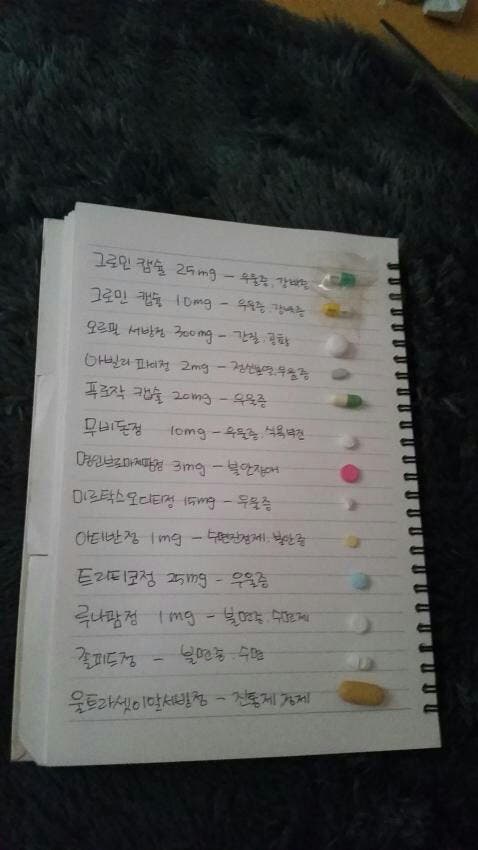 그로민 캡슐 25mg - 우울증, 강박증
그로민 캡슐 10mg - 우울증, 강박증
오르필 서방정 300mg - 간질, 공황
아빌리파이정 2mg - 정신분열, 우울증
푸로작 캡슐 20mg - 우울증
무비돈정 10mg - 우울증, 식욕부진
명인브로마제팜정 3mg - 불안장애
미르탁스오디티정 15mg - 우울증
아티반정 1mg - 수면진정제, 불안증
트리티코정 25mg - 우울증
루나팜정 1mg - 불면증, 수면제
졸피드정 - 불면증, 수면
울트라셋이알서방정 - 진통제,